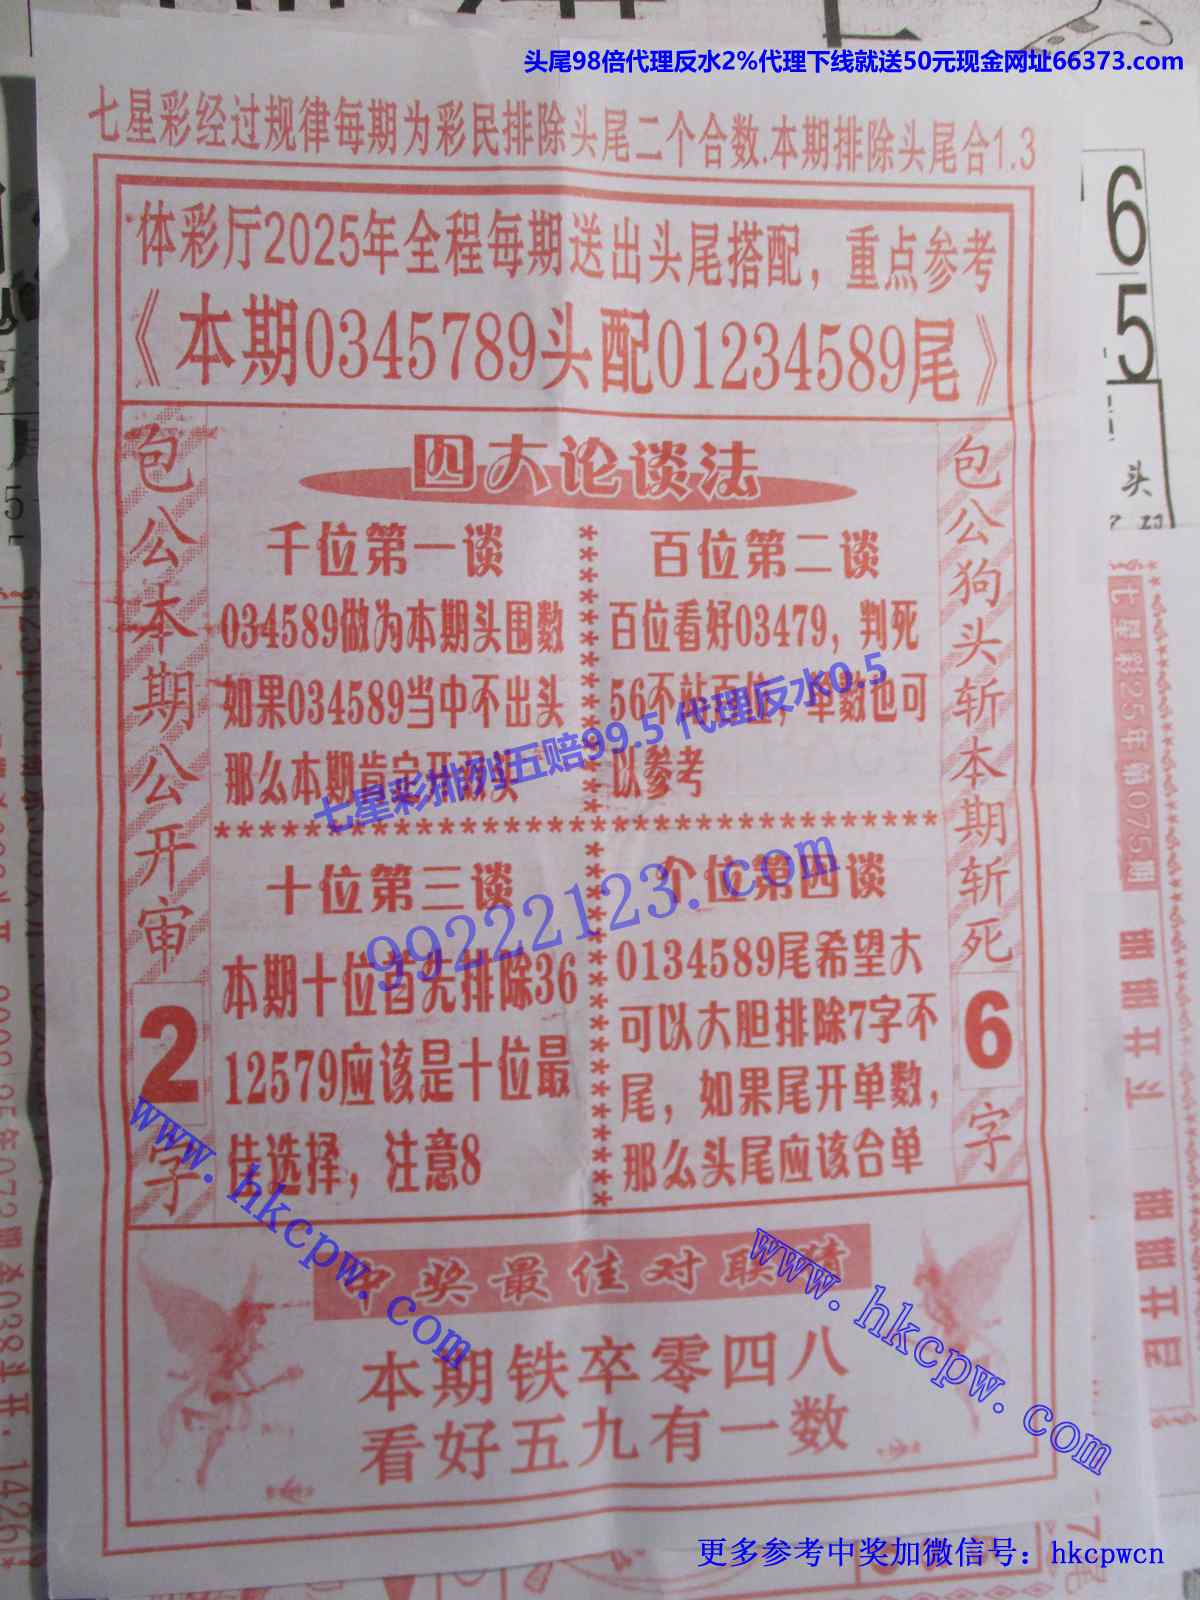 头尾98倍代理反水2%代理下线就送50元现金网址66373.com
七星彩经过规律每期为彩民排除头尾二个合数.本期排除头尾合1.3
体彩厅2025年全程每期送出头尾搭配，重点参考
《本期0345789头配01234589尾》
包公本期公开审2字
四大论谈法
千位第一谈
034589做为本期头围数
如果034589当中不出头
那么本期肯定开双头
百位第二谈
百位看好03479，判死
56不站百位，单数也可
以参考
十位第三谈
本期十位首先排除36
12579应该是十位最
佳选择，注意8
个位第四谈
0134589尾希望大
可以大胆排除7字不
尾，如果尾开单数，
那么头尾应该合单
包公狗头斩本期斩死6字
七星彩排列五赔99.5 代理反水0.5
99222123.com
www.hkcpw.com
www.hkcpw.com
中奖最佳对联猜
本期铁卒零四八
看好五九有一数
更多参考中奖加微信号：hkcpwcn
6
5
头
七星彩25年第075期